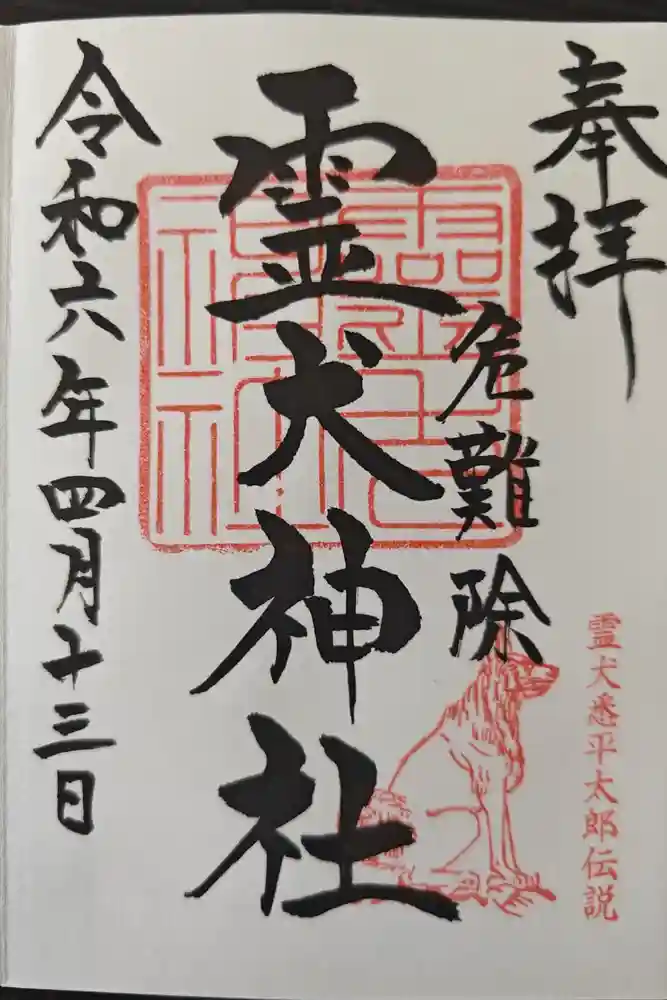 奉拝
危難除
霊犬悉平太郎伝説
霊犬神社
令和六年四月十三日